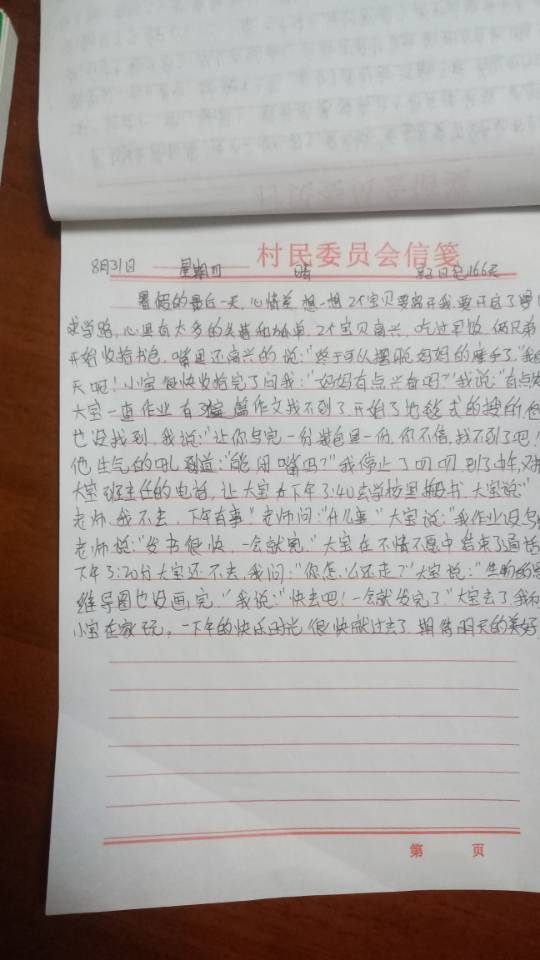 村民委员会信笺
8月31日 星期四 晴 第3日包166天
暑假的最后一天,心情差想一想2个宝贝要离开我要开启了
求学路,心里有太多的 和 2个宝贝高兴,吃过早饭俩兄弟
开始收拾书包,嘴里还高兴的说:"终于可以摆脱妈妈的魔手了"我的
天呢!小宝很快收拾完了问我:"妈妈有点兴奋吗?"我说:"有点
大宝一直作业有3篇作文找不到了开始了地毯式的搜所
也没找到,我说:"让你写完一份装包里一份,你不信,找不到了吧!
他生气的吼到道:"能闭嘴吗?"我停止了叨叨,到了中午,又接
大宝班主任的电话,让大宝在下午3:40去学校里搬书,大宝说:"
老师,我不去,下午有事"老师问:"什么事"大宝说:"我作业没写
老师说:"发书很快,一会就完"大宝在不情不愿中结束了通话
下午3:20分大宝还不去,我问:"你怎么还走?"大宝说:"生物的思
维导图也没画完"我说:"快去吧!一会就发完了"大宝去了我和
小宝在家玩,一下午的快乐时光很快就过去了期待明天的美好
第 页